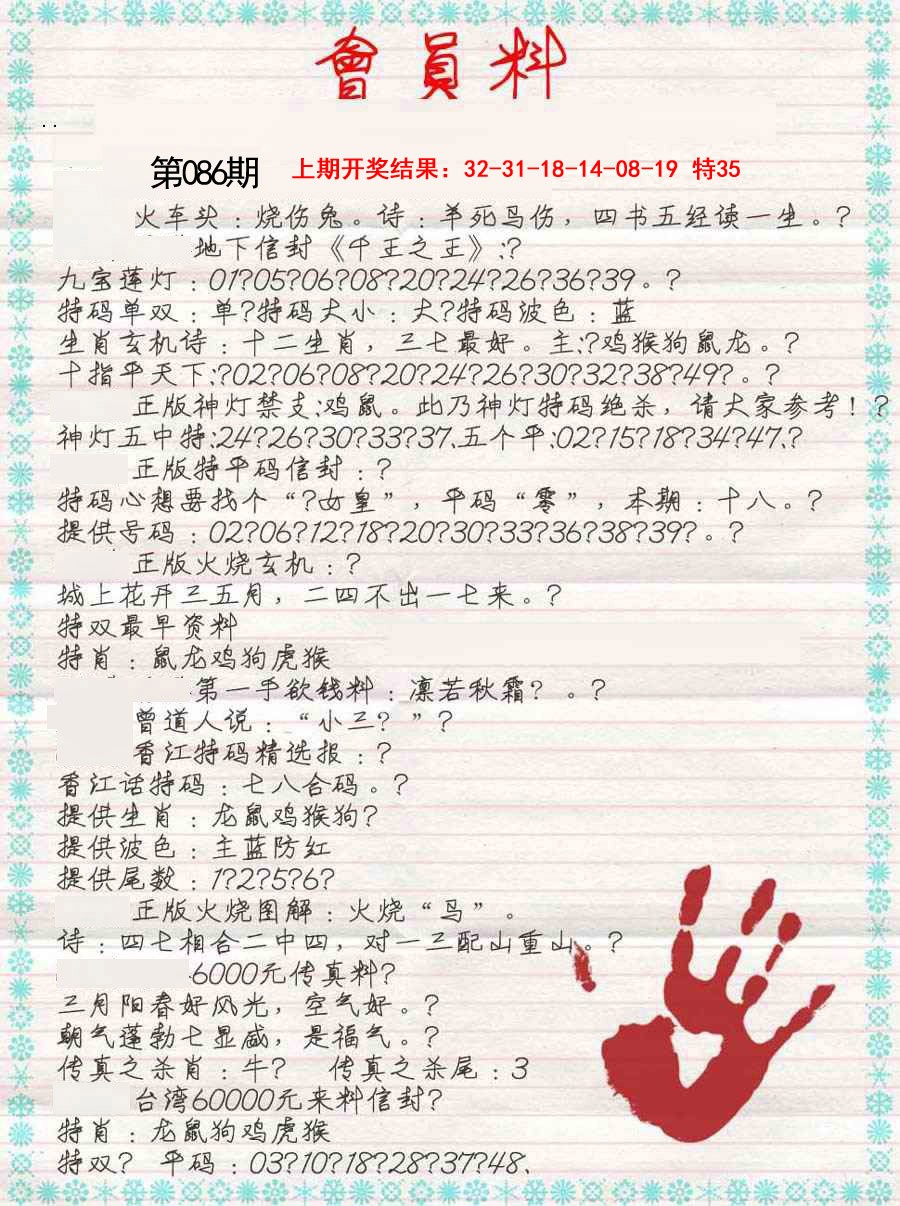 會員料
第086期 上期开奖结果：32-31-18-14-08-19 特35
火车头：烧伤兔。诗：羊死鸟伤，四书五经读一生。?
地下信封《千王之王》:?
九宝莲灯：01?05?06?08?20?24?26?36?39。?
特码单双：单?特码大小：大?特码波色：蓝
生肖玄机诗：十二生肖，三七最好。主:?鸡猴狗鼠龙。?
十指平天下:?02?06?08?20?24?26?30?32?38?49?。?
正版神灯禁支:鸡鼠。此乃神灯特码绝杀，请大家参考！?
神灯五中特:24?26?30?33?37.五个平:02?15?18?34?47.?
正版特平码信封：?
特码心想要找个“?女皇”，平码“零”，本期：十八。?
提供号码：02?06?12?18?20?30?33?36?38?39?。?
正版火烧玄机：?
城上花开三五月，二四不出一七来。?
特双最早资料
特肖：鼠龙鸡狗虎猴
第一手欲钱料：凛若秋霜？。?
曾道人说：“小三？”?
香江特码精选报：?
香江话特码：七八合码。?
提供生肖：龙鼠鸡猴狗?
提供波色：主蓝防红
提供尾数：1?2?5?6?
正版火烧图解：火烧“鸟”。
诗：四七相合二中四，对一三配山重山。?
6000元传真料?
三月阳春好风光，空气好。?
朝气蓬勃七显威，是福气。?
传真之杀肖：牛? 传真之杀尾：3
台湾60000元来料信封?
特肖：龙鼠狗鸡虎猴
特双? 平码：03?10?18?28?37?48.